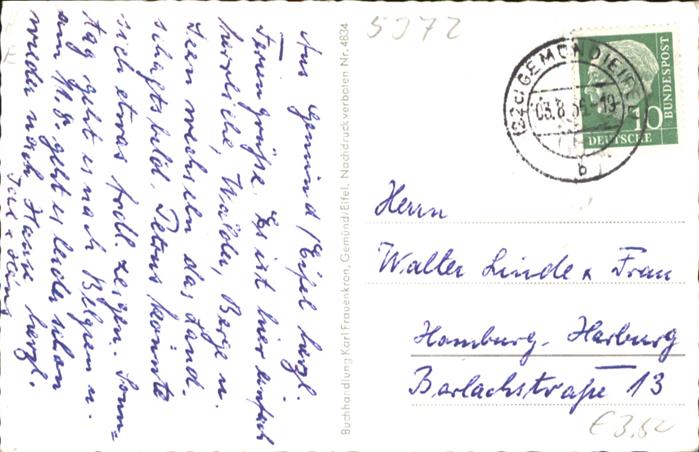 Aus Gemünd/Eifel herzl.
Feriengrüße. Es ist hier einfach
herrliche, Wälder, Berge u.
Seen wechseln das Land-
schaftsbild. Petrus könnte
sich etwas freundl. zeigen. Sonn-
tag geht es nach Belgien u.
am 11.8. geht es leider schon
wieder nach Hause. herzl.
Buchhandlung Karl Frauenkron, Gemünd/Eifel. Nachdruck verboten Nr. 4834
5372
(22c) GEMÜND (EIFEL)
03.8.56-19
b
10
DEUTSCHE
BUNDESPOST
Herrn
Walter Linde & Frau
Hamburg-Harburg
Barlachstraße 13
€ 3,52